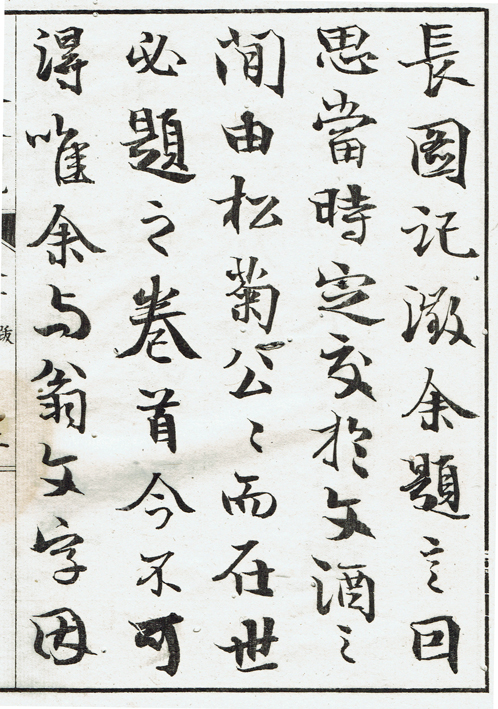 長圖記徵余題言回
思當時定交於文酒之
間由松菊公〻而在世
必題之卷首今不可
得唯余与翁文字因